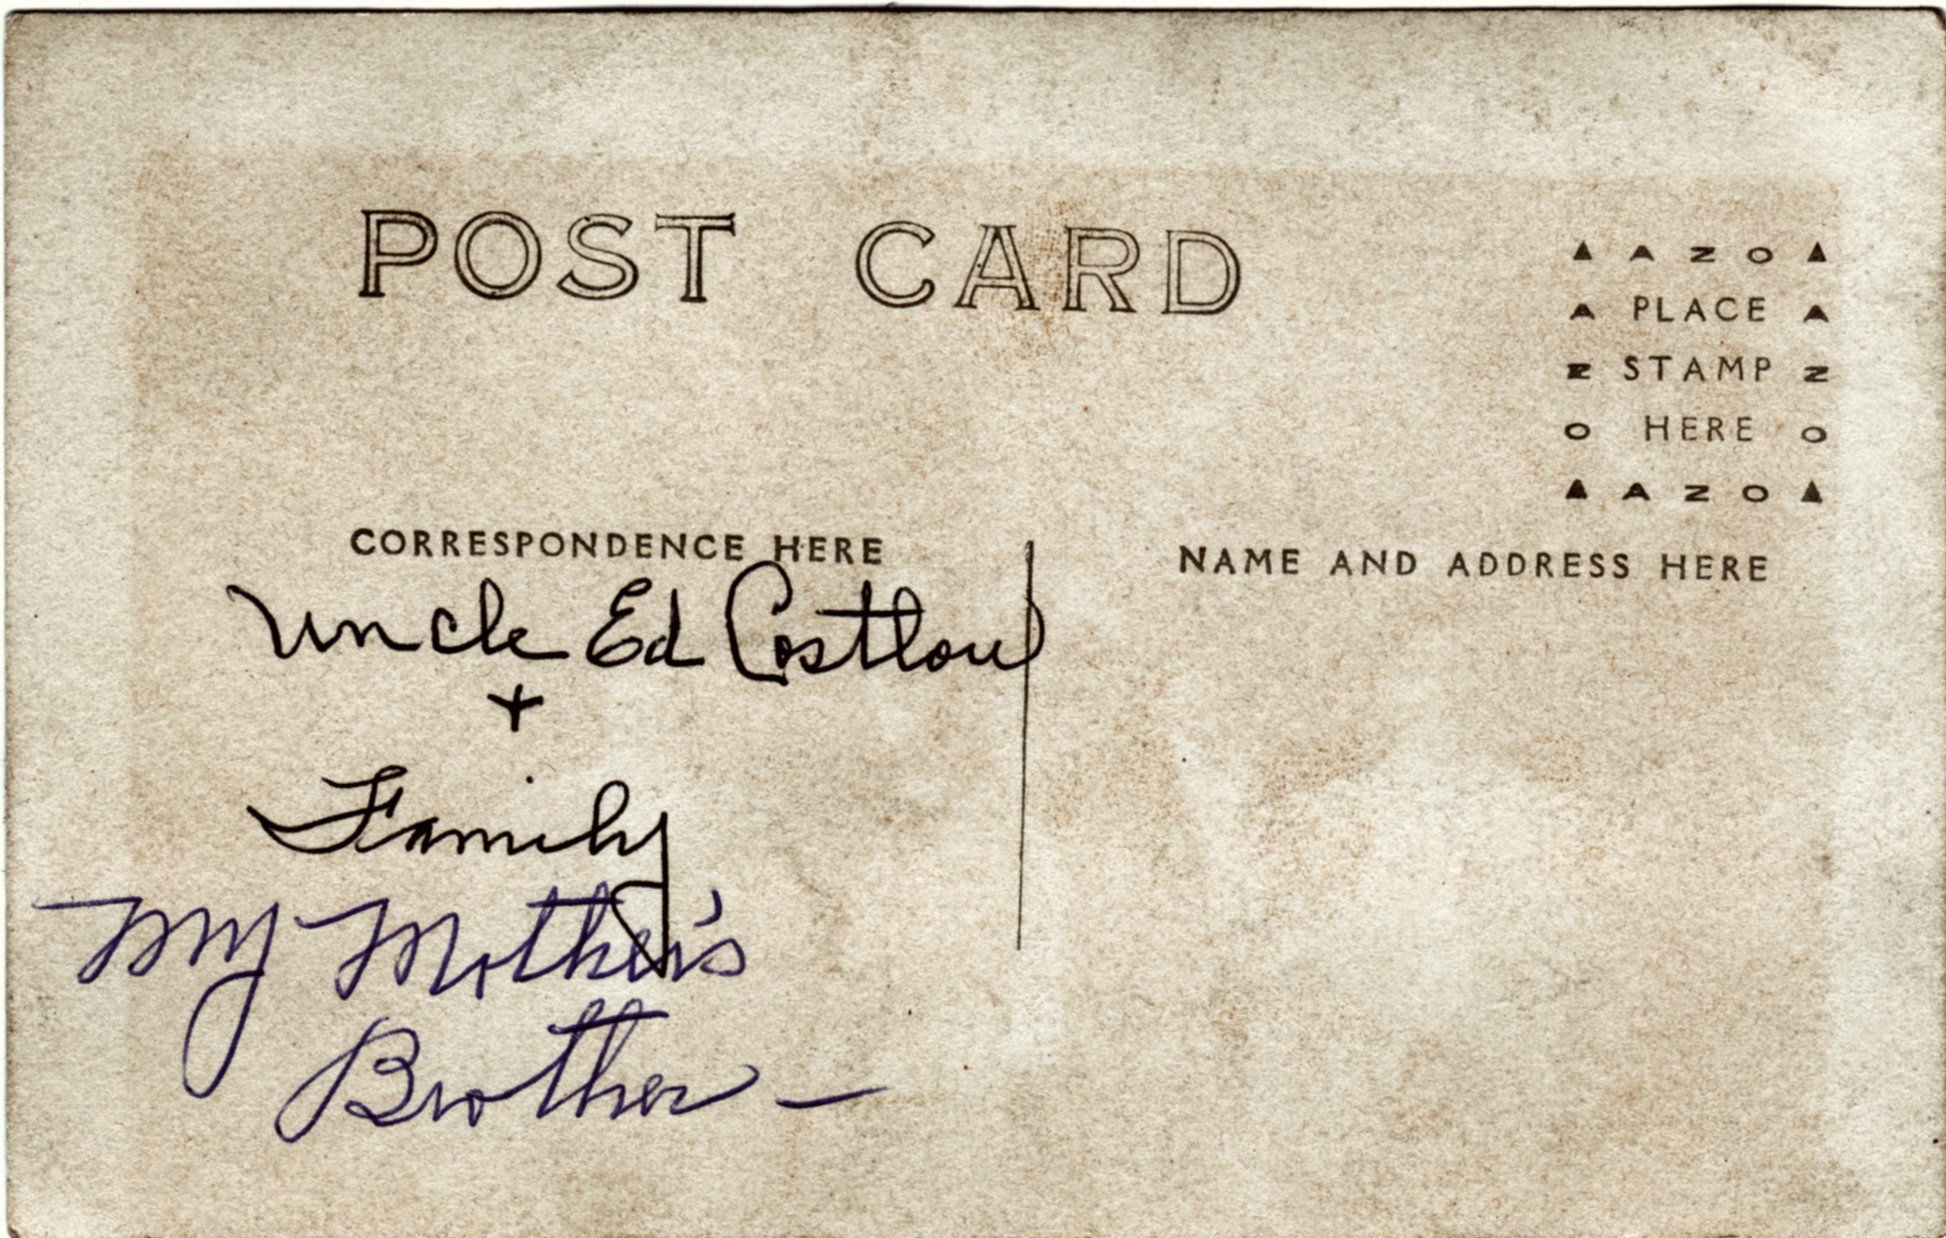 POST CARD
▲ A Z O ▲
A PLACE A
Z STAMP Z
O HERE O
▲ A Z O ▲
CORRESPONDENCE HERE
NAME AND ADDRESS HERE
Uncle Ed Costlow
+
Family
My Mother's
Brother —